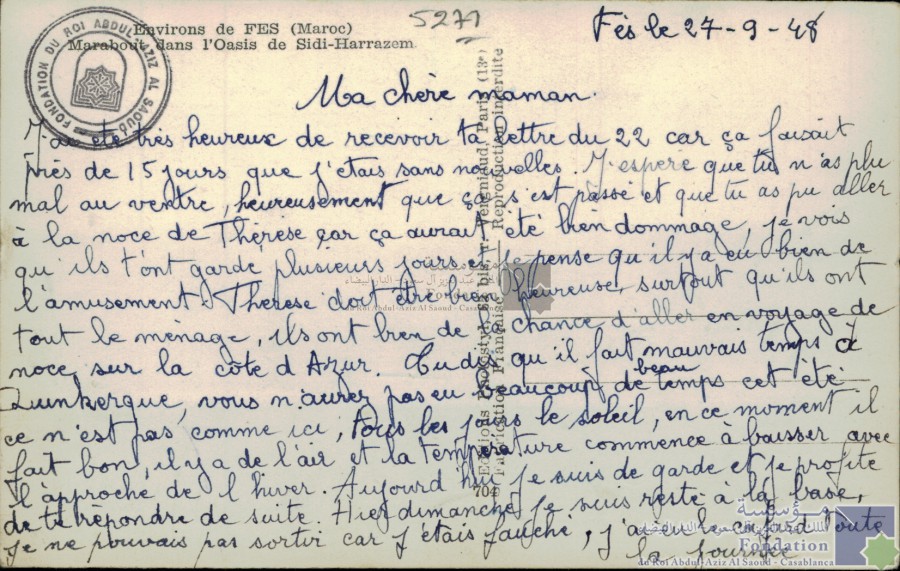 Environs de FES (Maroc)
Marabout dans l'Oasis de Sidi-Harrazem
5271
FONDATION DU ROI ABDUL-AZIZ AL SAOUD
Fès le 27-9-48
Ma chère maman.
J'ai été très heureux de recevoir ta lettre du 22 car ça faisait
près de 15 jours que j'étais sans nouvelles. J'espère que tu n'as plu
mal au ventre, heureusement que ça s'est passé et que tu as pu aller
à la noce de Thérèse car ça aurait été bien dommage, je vois
qu'ils t'ont gardé plusieurs jours et je pense qu'il y a eu bien de
l'amusement. Thérèse doit être bien heureuse, surtout qu'ils ont
tout le ménage, ils ont bien de la chance d'aller en voyage de
noce sur la côte d'Azur. Tu dis qu'il fait mauvais temps à
Dunkerque, vous n'aurez pas eu beaucoup de beau temps cet été
ce n'est pas comme ici, tous les jours le soleil, en ce moment il
fait bon, il y a de l'air et la température commence à baisser avec
l'approche de l'hiver. Aujourd'hui je suis de garde et je profite
de te répondre de suite. Hier dimanche je suis resté à la base,
je ne pouvais pas sortir car j'étais fauché, j'ai eu le cafard toute
la journée
704
Reproduction interdite
Fabrication Française
Fondation
du Roi Abdul-Aziz Al Saoud - Casablanca